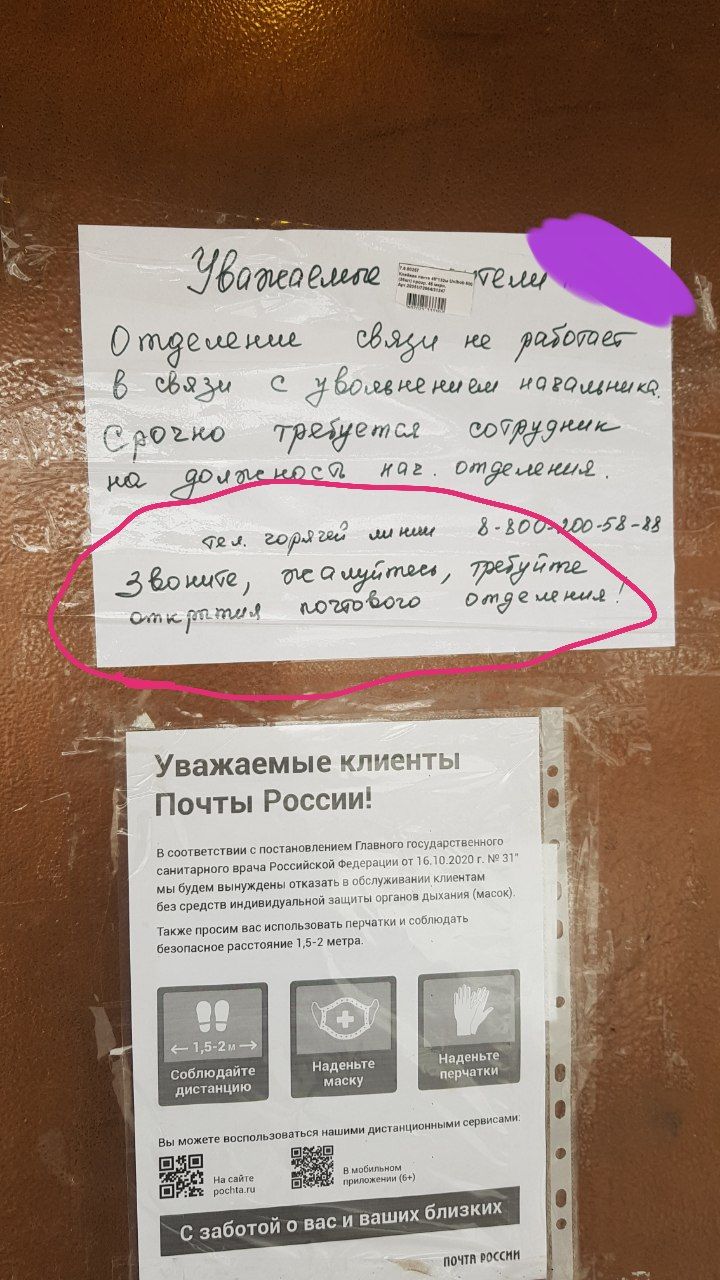 Уважаемые
Отделение связи не работает
в связи с увольнением начальника.
Срочно требуется сотрудник
на должность нач. отделения.
тел. горячей линии 8-800-200-58-88
Звоните, жалуйтесь, требуйте
открытия почтового отделения!
Уважаемые клиенты
Почты России!
В соответствии с постановлением Главного государственного
санитарного врача Российской Федерации от 16.10.2020 г. № 31"
мы будем вынуждены отказать в обслуживании клиентам
без средств индивидуальной защиты органов дыхания (масок).
Также просим вас использовать перчатки и соблюдать
безопасное расстояние 1,5-2 метра.
← 1,5-2 м →
Соблюдайте
дистанцию
Наденьте
маску
Наденьте
перчатки
Вы можете воспользоваться нашими дистанционными сервисами:
На сайте
pochta.ru
В мобильном
приложении (6+)
С заботой о вас и ваших близких
ПОЧТА РОССИИ